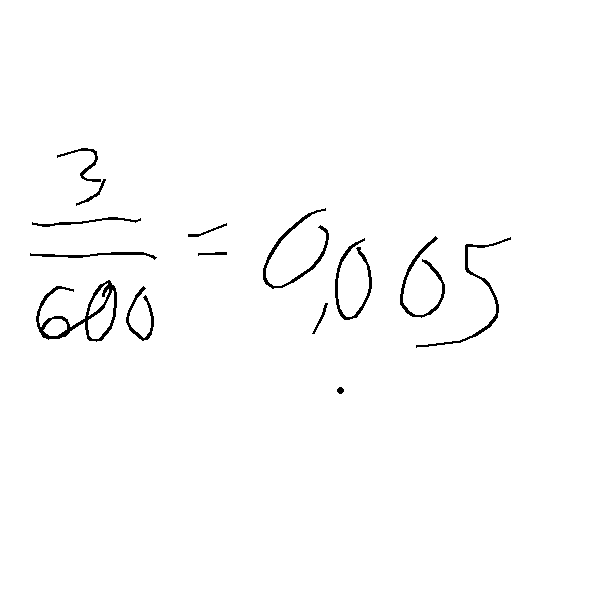 3
600 = 0,005